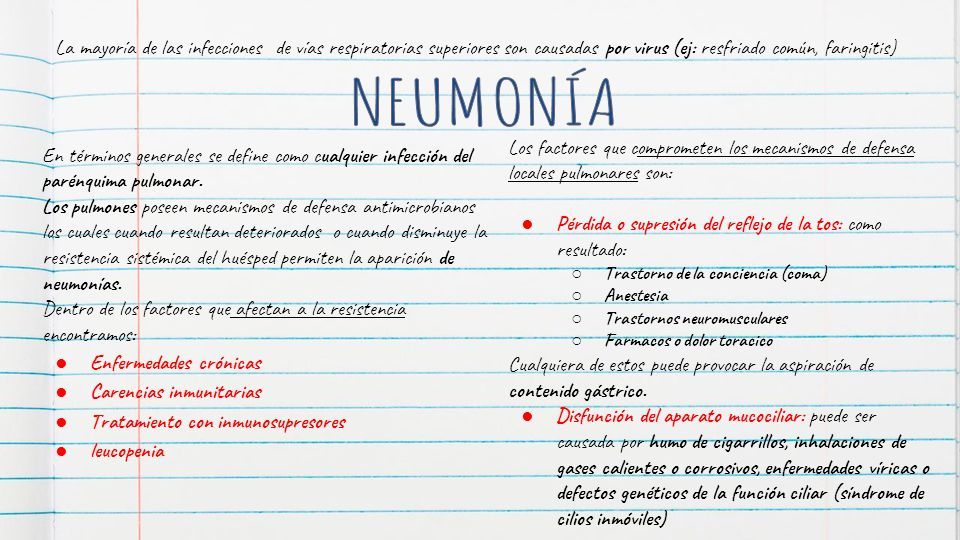 La mayoría de las infecciones de vías respiratorias superiores son causadas por virus (ej: resfriado común, faringitis)
NEUMONÍA
En términos generales se define como cualquier infección del
parénquima pulmonar.
Los pulmones poseen mecanismos de defensa antimicrobianos
las cuales cuando resultan deteriorados o cuando disminuye la
resistencia sistémica del huésped permiten la aparición de
neumonías.
Dentro de los factores que afectan a la resistencia
encontramos:
● Enfermedades crónicas
● Carencias inmunitarias
● Tratamiento con inmunosupresores
● leucopenia
Los factores que comprometen los mecanismos de defensa
locales pulmonares son:
● Pérdida o supresión del reflejo de la tos: como
resultado:
○ Trastorno de la conciencia (coma)
○ Anestesia
○ Trastornos neuromusculares
○ Farmacos o dolor toracico
Cualquiera de estos puede provocar la aspiración de
contenido gástrico.
● Disfunción del aparato mucociliar: puede ser
causada por humo de cigarrillos, inhalaciones de
gases calientes o corrosivos, enfermedades víricas o
defectos genéticos de la función ciliar (síndrome de
cilios inmóviles)